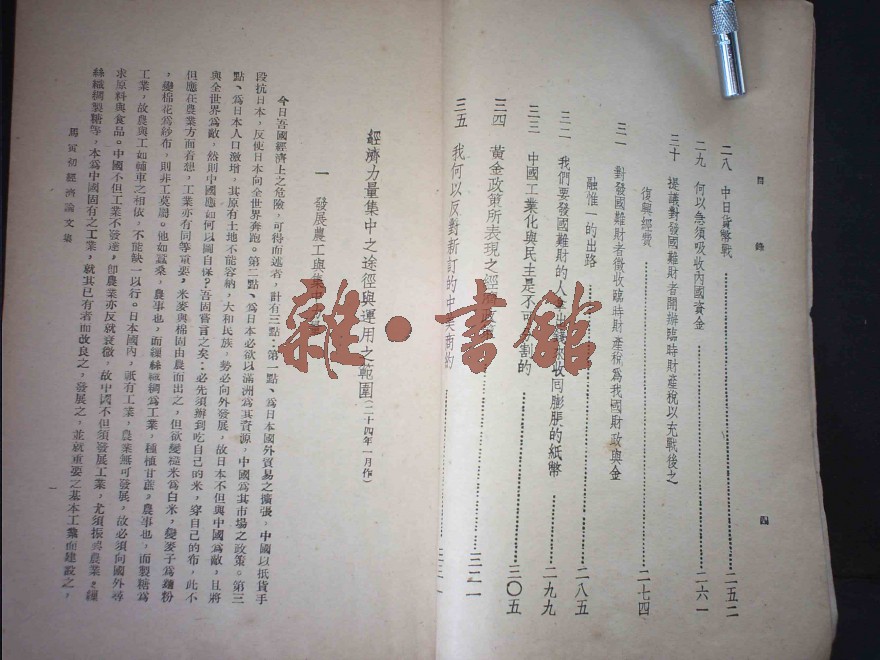 目錄 四
二八 中日貨幣戰……二五二
二九 何以急須吸收內國資金……二六一
三十 提議對發國難財者開辦臨時財產稅以充戰後之
復興經費……二七四
三一 對發國難財者徵收臨時財產稅爲我國財政與金
融惟一的出路……二八五
三二 我們要發國難財的人拿出錢來收回膨脹的紙幣……二九九
三三 中國工業化與民主是不可分割的……三〇五
三四 黃金政策所表現之經濟政策……三二一
三五 我何以反對新訂的中美商約……
雜·書館
經濟力量集中之途徑與運用之範圍(二十四年一月作)
一 發展農工與集中力量
今日吾國經濟上之危險,可得而述者,計有三點:第一點、爲日本國外貿易之擴張,中國以抵貨手
段抗日本,反使日本向全世界奔跑。第二點、爲日本必欲以滿洲爲其資源,中國爲其市場之政策。第三
點、爲日本人口激增,其原有土地不能容納,大和民族,勢必向外發展,故日本不但與中國爲敵,且將
與全世界爲敵,然則中國應如何以圖自保?吾固嘗言之矣:必先須辦到吃自己的米,穿自己的布,此不
但應在農業方面着想,工業亦有同等重要,米麥與棉固由農而出之,但欲變糙米爲白米,變麥子爲麵粉
,變棉花爲紗布,則非工莫屬。他如蠶桑,農事也,而繰絲織綢爲工業,種植甘蔗,農事也,而製糖爲
工業,故農與工如輔車之相依,不能缺一以行。日本國內,祇有工業,農業無可發展,故必須向國外尋
求原料與食品。中國不但工業不發達,卽農業亦反就衰微,故中國不但須發展工業,尤須振興農業,繅
絲織綢製糖等,本爲中國固有之工業,就其已有者而改良之,發展之,並就重要之基本工業而建設之,
馬寅初經濟論文集 一